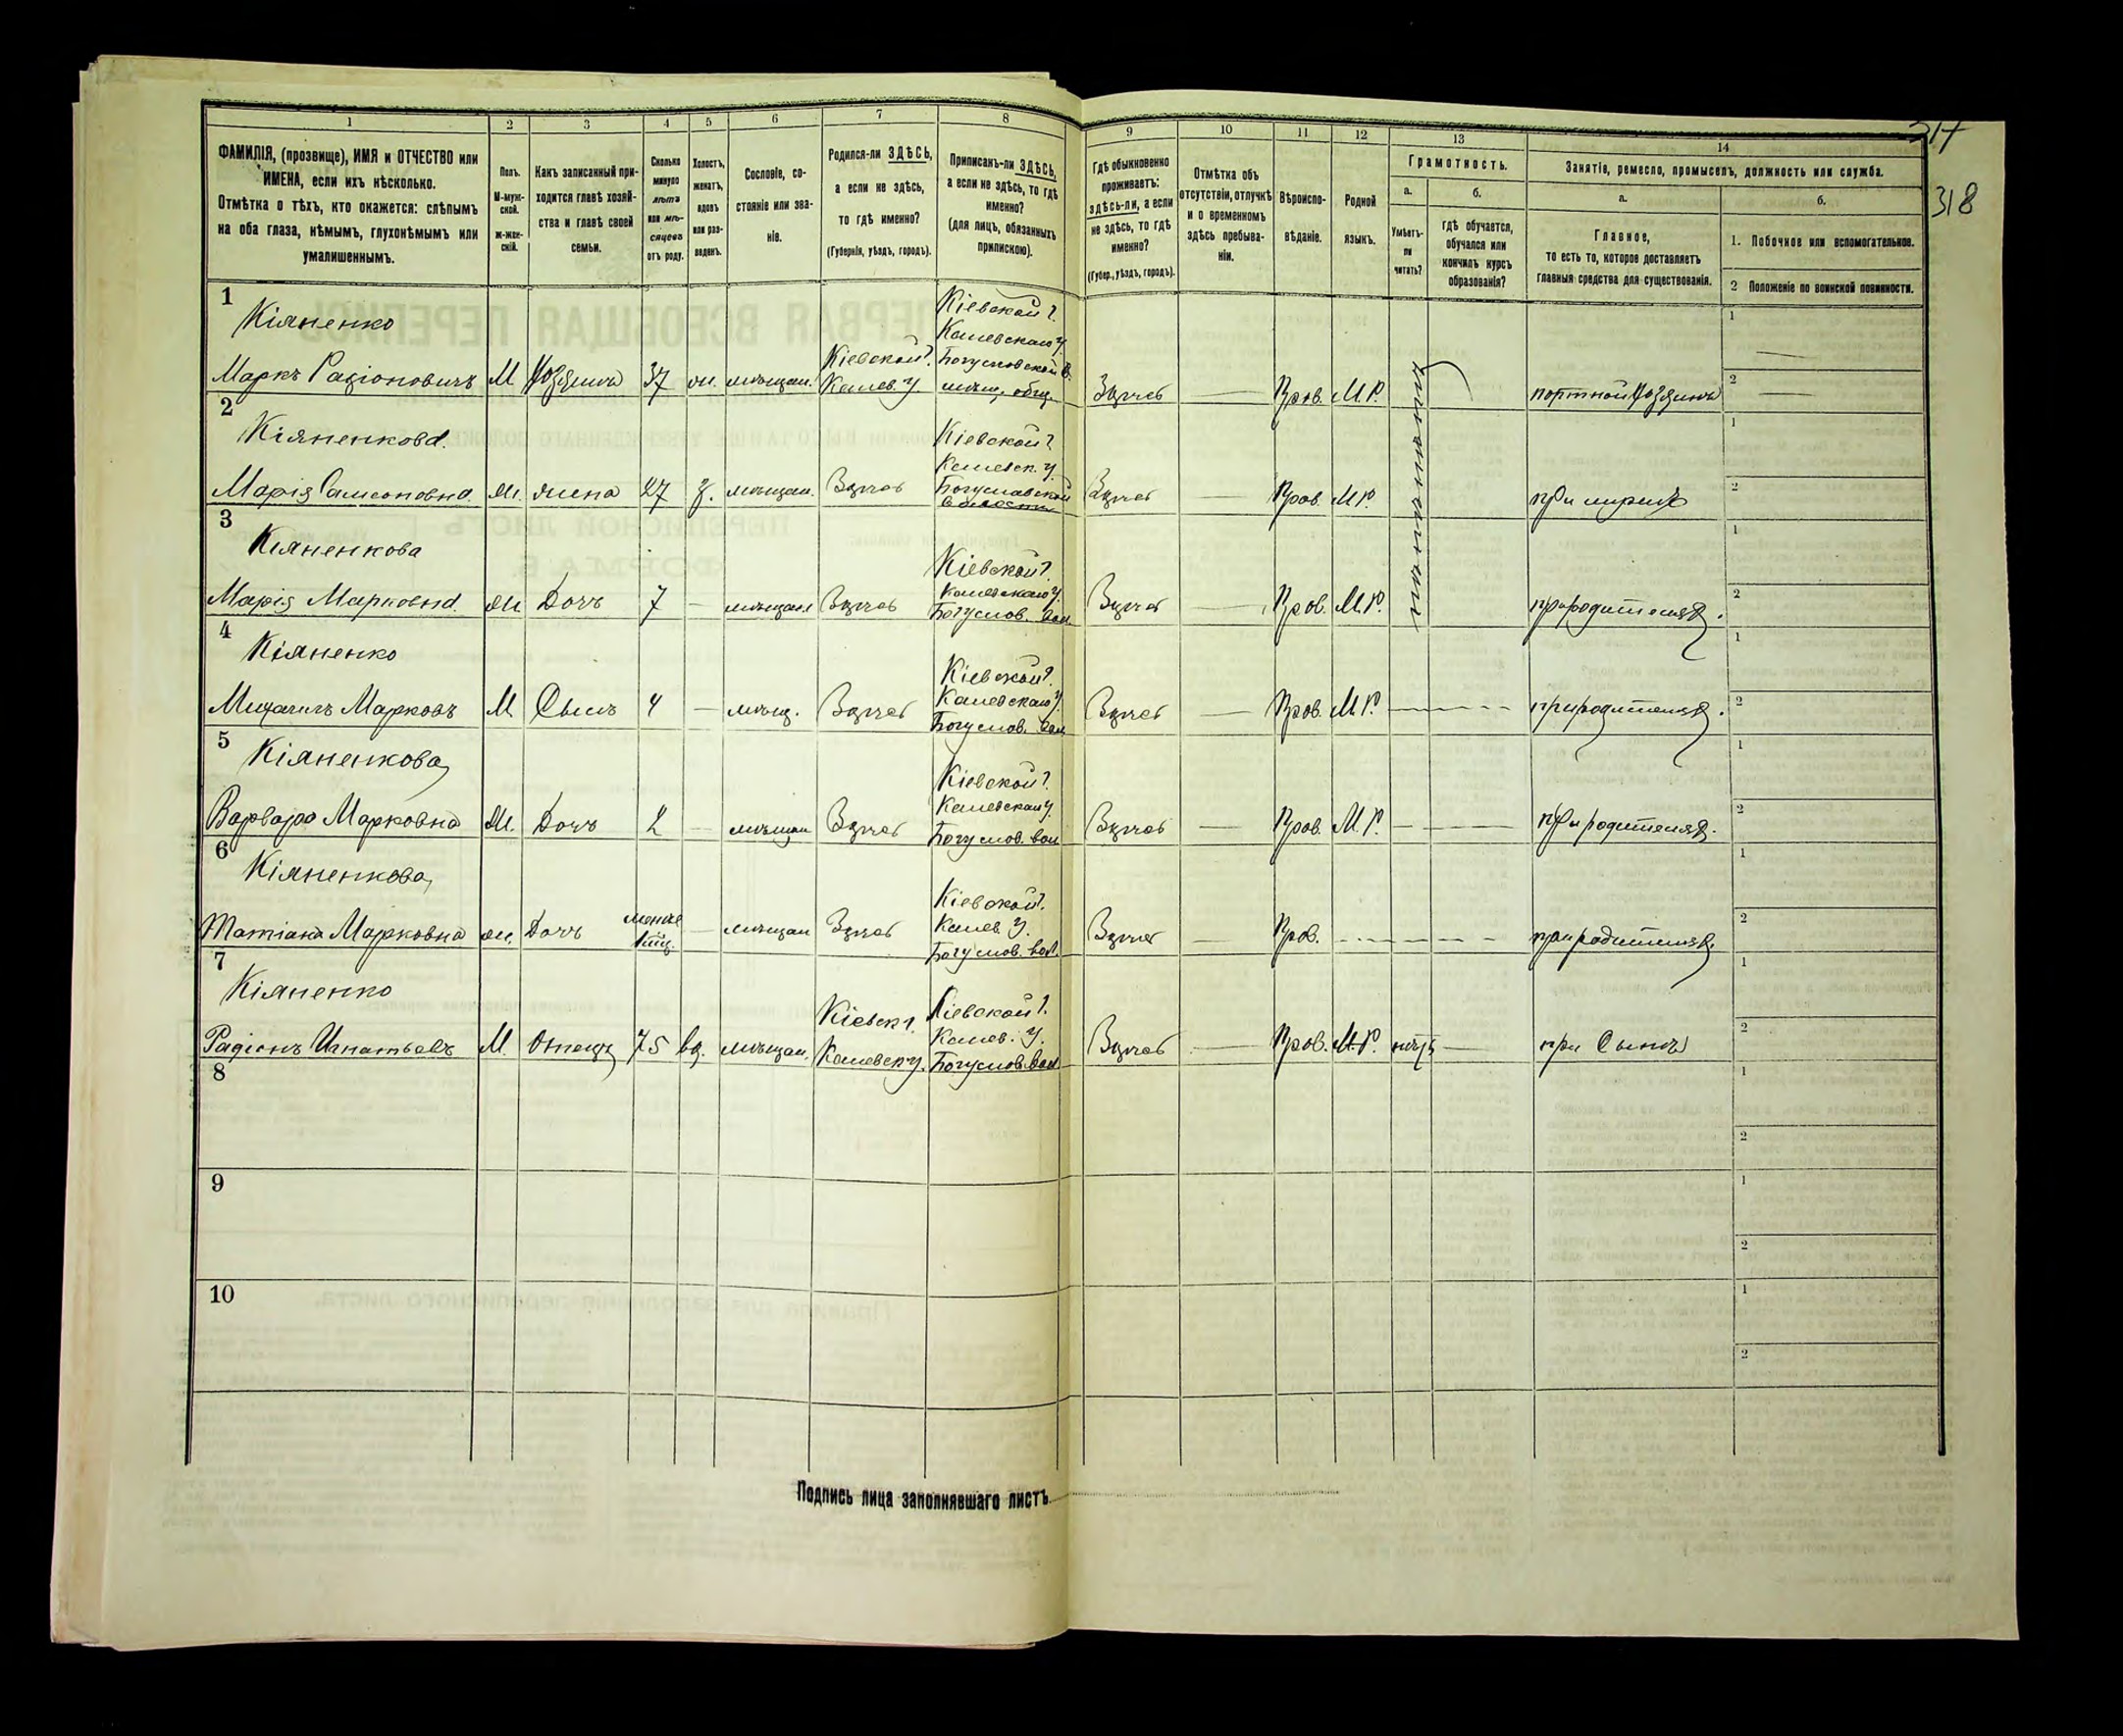 1 2 3 4 5 6 7 8 9 10 11 12 13 14
ФАМИЛІЯ, (прозвище), ИМЯ и ОТЧЕСТВО или
ИМЕНА, если ихъ нѣсколько.
Отмѣтка о тѣхъ, кто окажется: слѣпымъ
на оба глаза, нѣмымъ, глухонѣмымъ или
умалишеннымъ.
Полъ.
М-муж-
ской.
ж-жен-
скій.
Какъ записанный при-
ходится главѣ хозяй-
ства и главѣ своей
семьи.
Сколько
минуло
лѣтъ
или мѣ-
сяцевъ
отъ роду.
Холостъ,
женатъ,
вдовъ
или раз-
веденъ.
Сословіе, со-
стояніе или зва-
ніе.
Родился-ли ЗДѢСЬ,
а если не здѣсь,
то гдѣ именно?
(Губернія, уѣздъ, городъ).
Приписанъ-ли ЗДѢСЬ,
а если не здѣсь, то гдѣ
именно?
(для лицъ, обязанныхъ
припискою).
Гдѣ обыкновенно
проживаетъ:
здѣсь-ли, а если
не здѣсь, то гдѣ
именно?
(Губер., уѣздъ, городъ).
Отмѣтка объ
отсутствіи, отлучкѣ
и о временномъ
здѣсь пребыва-
ніи.
Вѣроиспо-
вѣданіе.
Родной
языкъ.
Грамотность.
а.
Умѣетъ-
ли
читать?
б.
гдѣ обучается,
обучался или
кончилъ курсъ
образованія?
Занятіе, ремесло, промыселъ, должность или служба.
а.
Главное,
то есть то, которое доставляетъ
главныя средства для существованія.
б.
1. Побочное или вспомогательное.
2 Положеніе по воинской повинности.
317
318
1
Кіяненко
Маркъ Радіоновичъ М Хозяинъ 37 ж. мѣщан. Кіевской г. Канев. У. Кіевской г.
Каневскаго У.
Богуславской В.
мѣщ. общ. Здѣсь — Прав. М.Р. портной Хозяинъ
1
2
2
Кіяненкова
Марія Самсоновна ж. жена 27 з. мѣщан. Здѣсь Кіевской г.
Каневск. У.
Богуславской
волости Здѣсь — Прав. М.Р.
1
2
3
Кіяненкова
Марія Марковна ж Дочь 7 — мѣщан Здѣсь Кіевской г.
Каневскаго У.
Богуслов. вол. Здѣсь — Прав. М.Р. при родителяхъ.
1
2
4
Кіяненко
Михаилъ Марковъ М Сынъ 4 — мѣщ. Здѣсь Кіевской г.
Каневскаго У.
Богуслов. вол Здѣсь — Прав. М.Р. — при родителяхъ.
1
2
5
Кіяненкова
Варвара Марковна ж. Дочь 2 — мѣщан Здѣсь Кіевской г.
Каневскаго У.
Богуслов. вол Здѣсь — Прав. М.Р. — при родителяхъ.
1
2
6
Кіяненкова
Татіана Марковна ж. Дочь менѣе
1 мѣц. — мѣщан Здѣсь Кіевской г.
Канев У.
Богуслов. вол. Здѣсь — Прав. — при родителяхъ.
1
2
7
Кіяненко
Радіонъ Игнатьевъ М. Отецъ 75 вд. мѣщан. Кіевск г.
Каневск У. Кіевской г.
Канев. У.
Богуслов. вол Здѣсь — Прав. М.Р. нѣтъ — при Сынѣ
1
2
8
1
2
9
1
2
10
1
2
Подпись лица заполнявшаго листъ